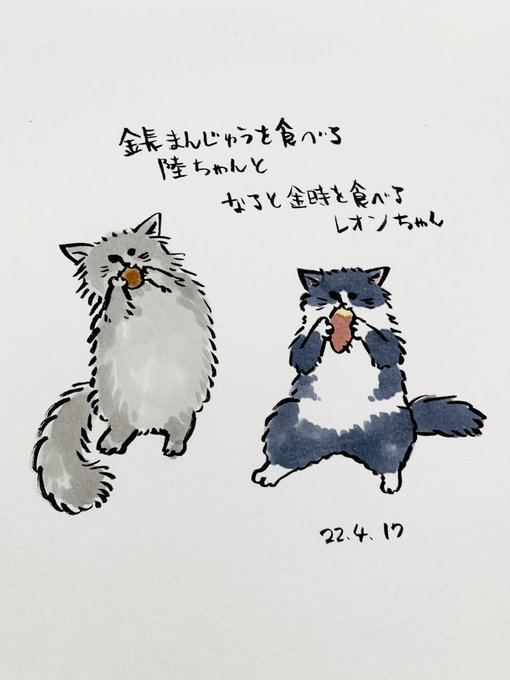 金長まんじゅうを食べる
陸ちゃんと
なると金時を食べる
レオンちゃん
22.4.17